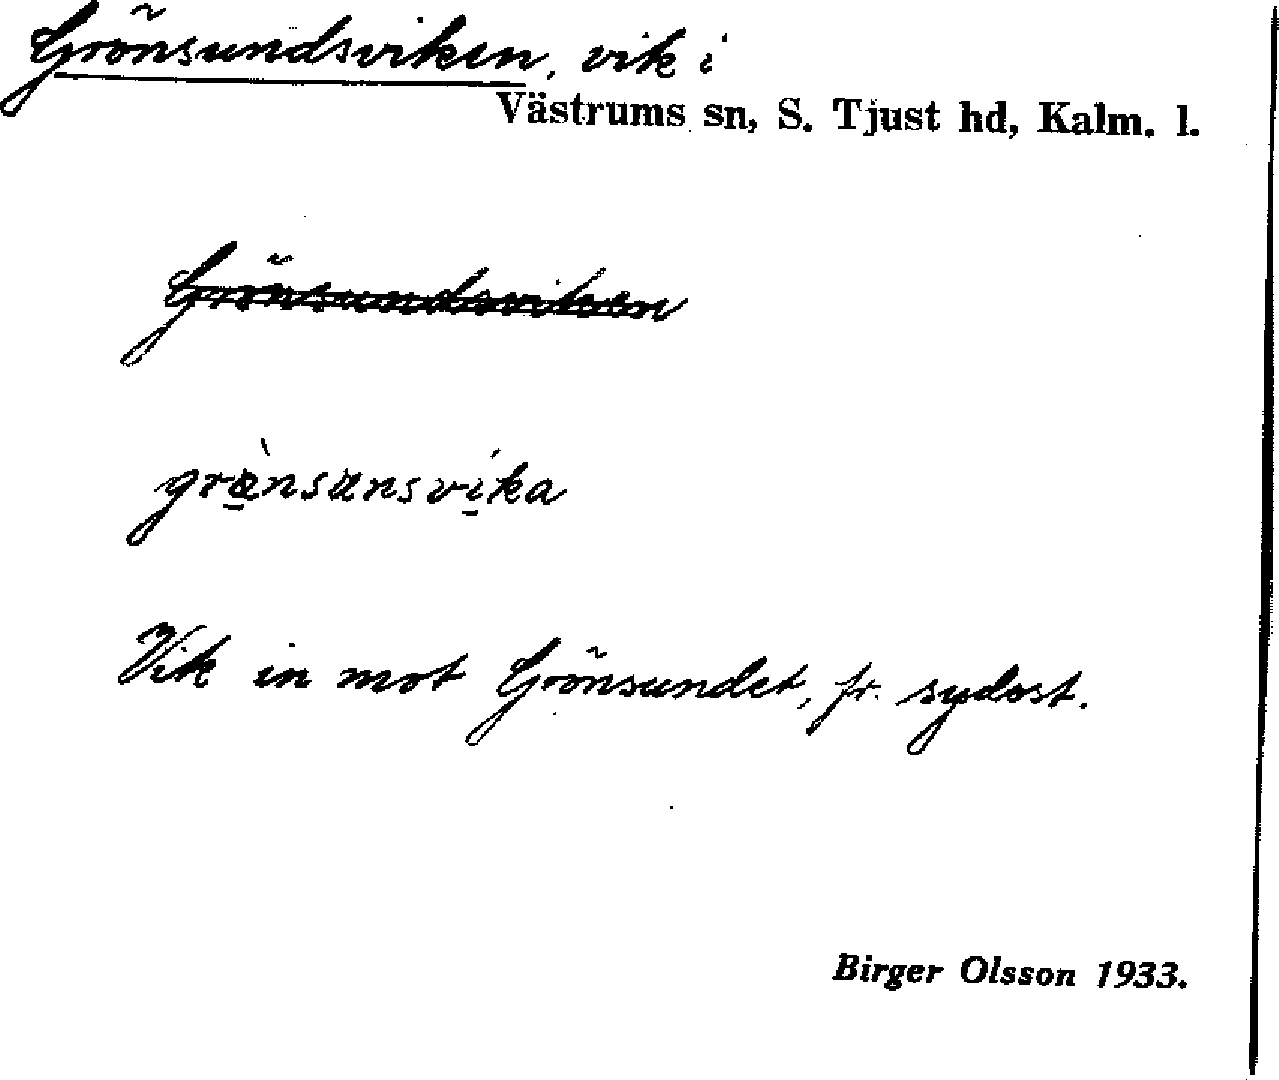 Grönsundsviken, vik i
Västrums sn, S. Tjust hd, Kalm. l.
Grönsundsviken
grànsunsvíka
Vik in mot Grönsundet, fr. sydost.
Birger Olsson 1933.